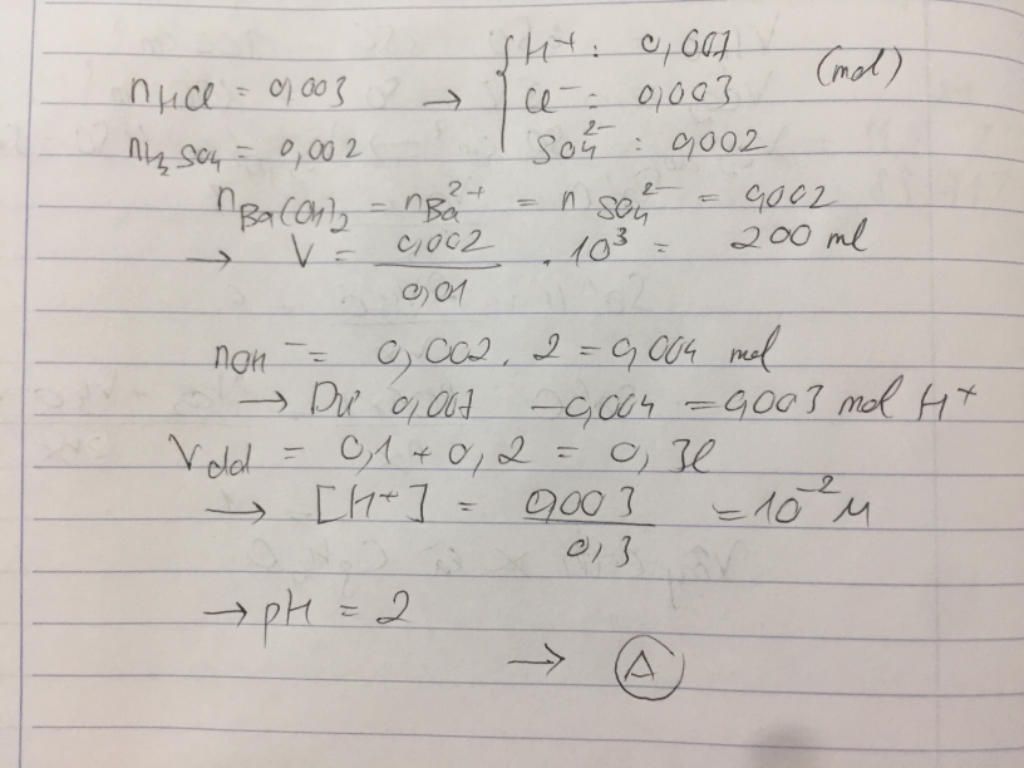 H⁺ : 0,007
nHCl = 0,003 → { Cl⁻ = 0,003 (mol)
nH₂SO₄ = 0,002 SO₄²⁻ : 0,002
nBa(OH)₂ = nBa²⁺ = n SO₄²⁻ = 0,002
→ V = 0,002/0,01 . 10³ = 200 ml
nOH⁻ = 0,002 . 2 = 0,004 mol
→ Dư 0,007 - 0,004 = 0,003 mol H⁺
Vdd = 0,1 + 0,2 = 0,3l
→ [H⁺] = 0,003/0,3 = 10⁻² M
→ pH = 2
→ A